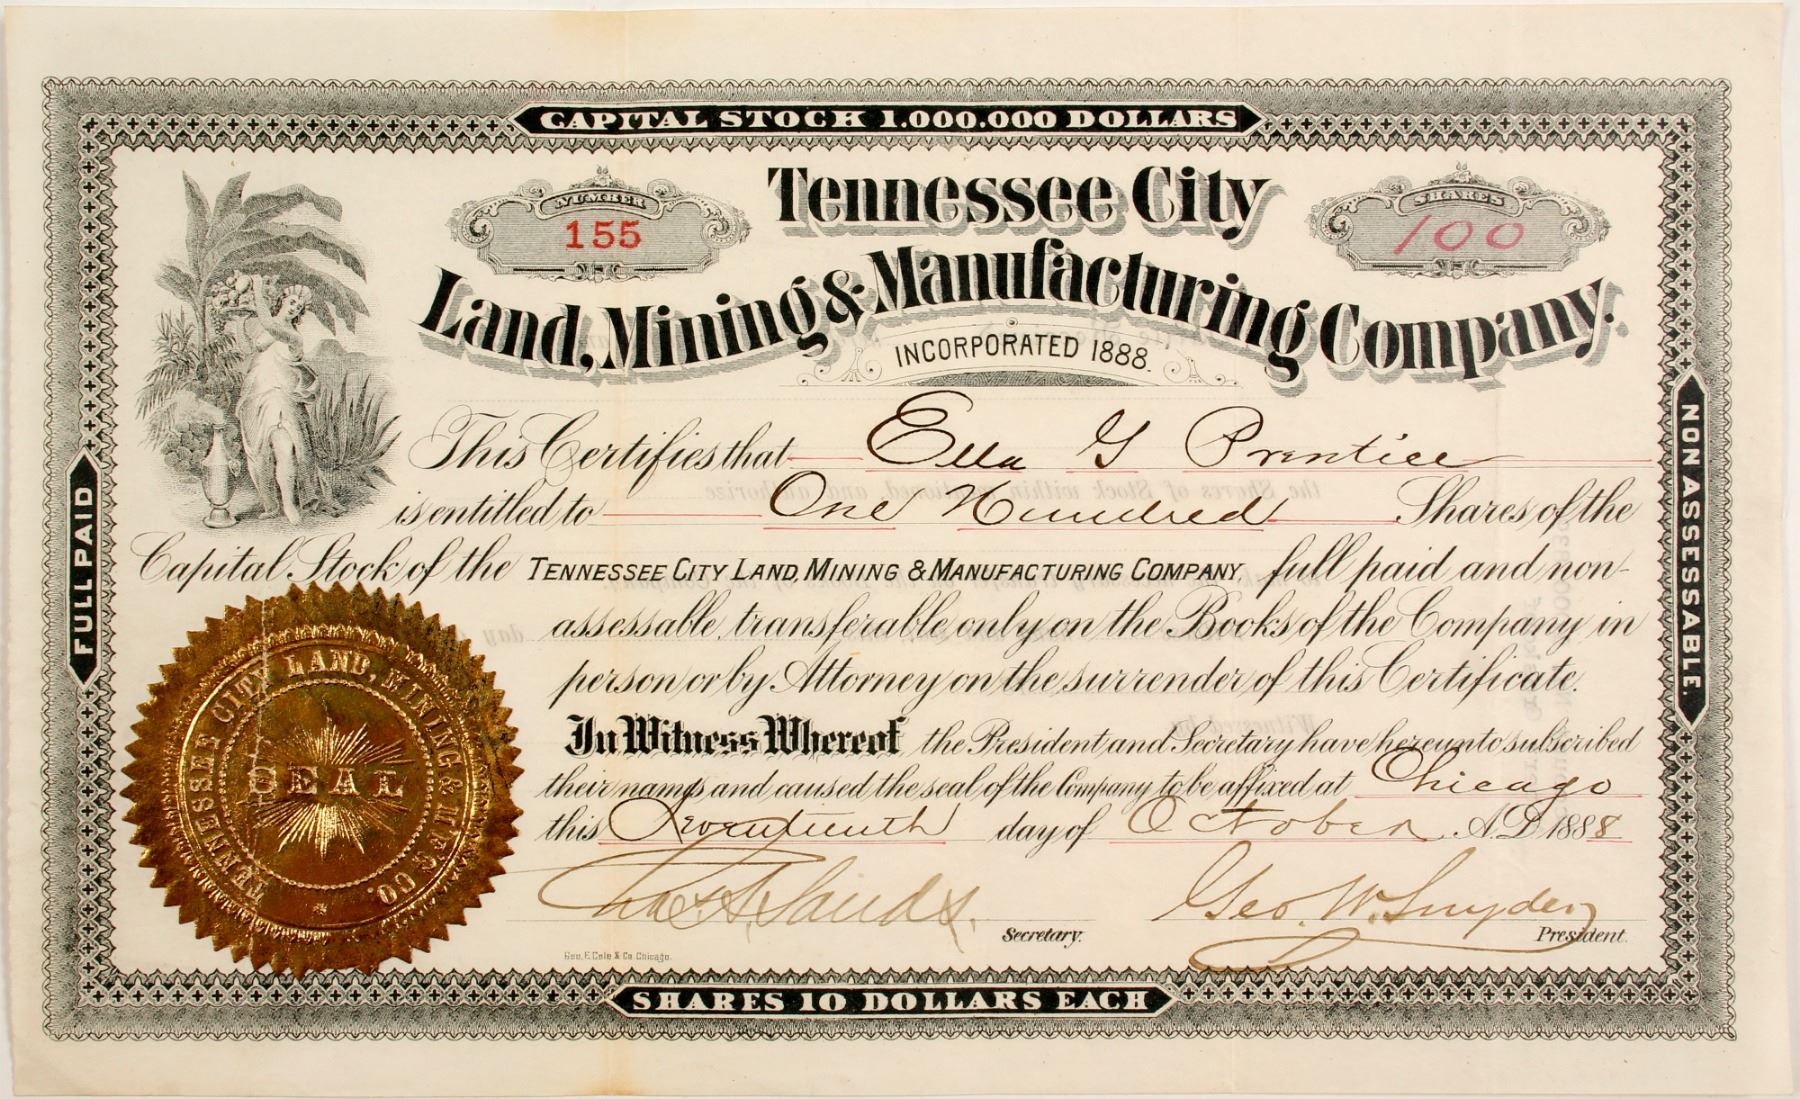 CAPITAL STOCK 1.000.000 DOLLARS
NUMBER
155
SHARES
100
Tennessee City
Land, Mining & Manufacturing Company.
INCORPORATED 1888.
This Certifies that Ella G Prentice
is entitled to One Hundred Shares of the
Capital Stock of the TENNESSEE CITY LAND, MINING & MANUFACTURING COMPANY, full paid and non-
assessable, transferable only on the Books of the Company in
person or by Attorney on the surrender of this Certificate.
In Witness Whereof the President and Secretary have hereunto subscribed
their names and caused the seal of the Company to be affixed at Chicago
this Seventeenth day of October A.D. 1888
Sands.
Secretary.
Geo. W. Snyder
President.
Geo. E. Cole & Co. Chicago.
SHARES 10 DOLLARS EACH
FULL PAID
NON ASSESSABLE.
TENNESSEE CITY LAND, MINING & M'F'G CO.
SEAL